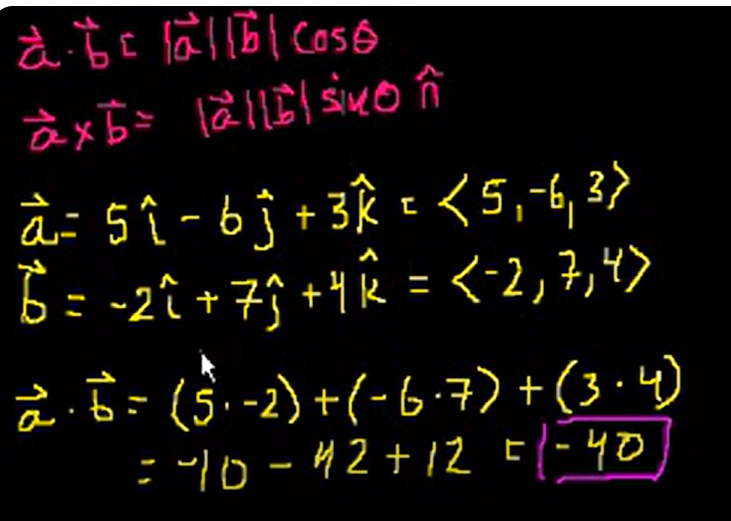 a⃗ · b⃗ = |a⃗||b⃗| cosθ
a⃗ × b⃗ = |a⃗||b⃗| sinθ n̂
a⃗ = 5î - 6ĵ + 3k̂ = <5, -6, 3>
b⃗ = -2î + 7ĵ + 4k̂ = <-2, 7, 4>
a⃗ · b⃗ = (5 · -2) + (-6 · 7) + (3 · 4)
= -10 - 42 + 12 = -40